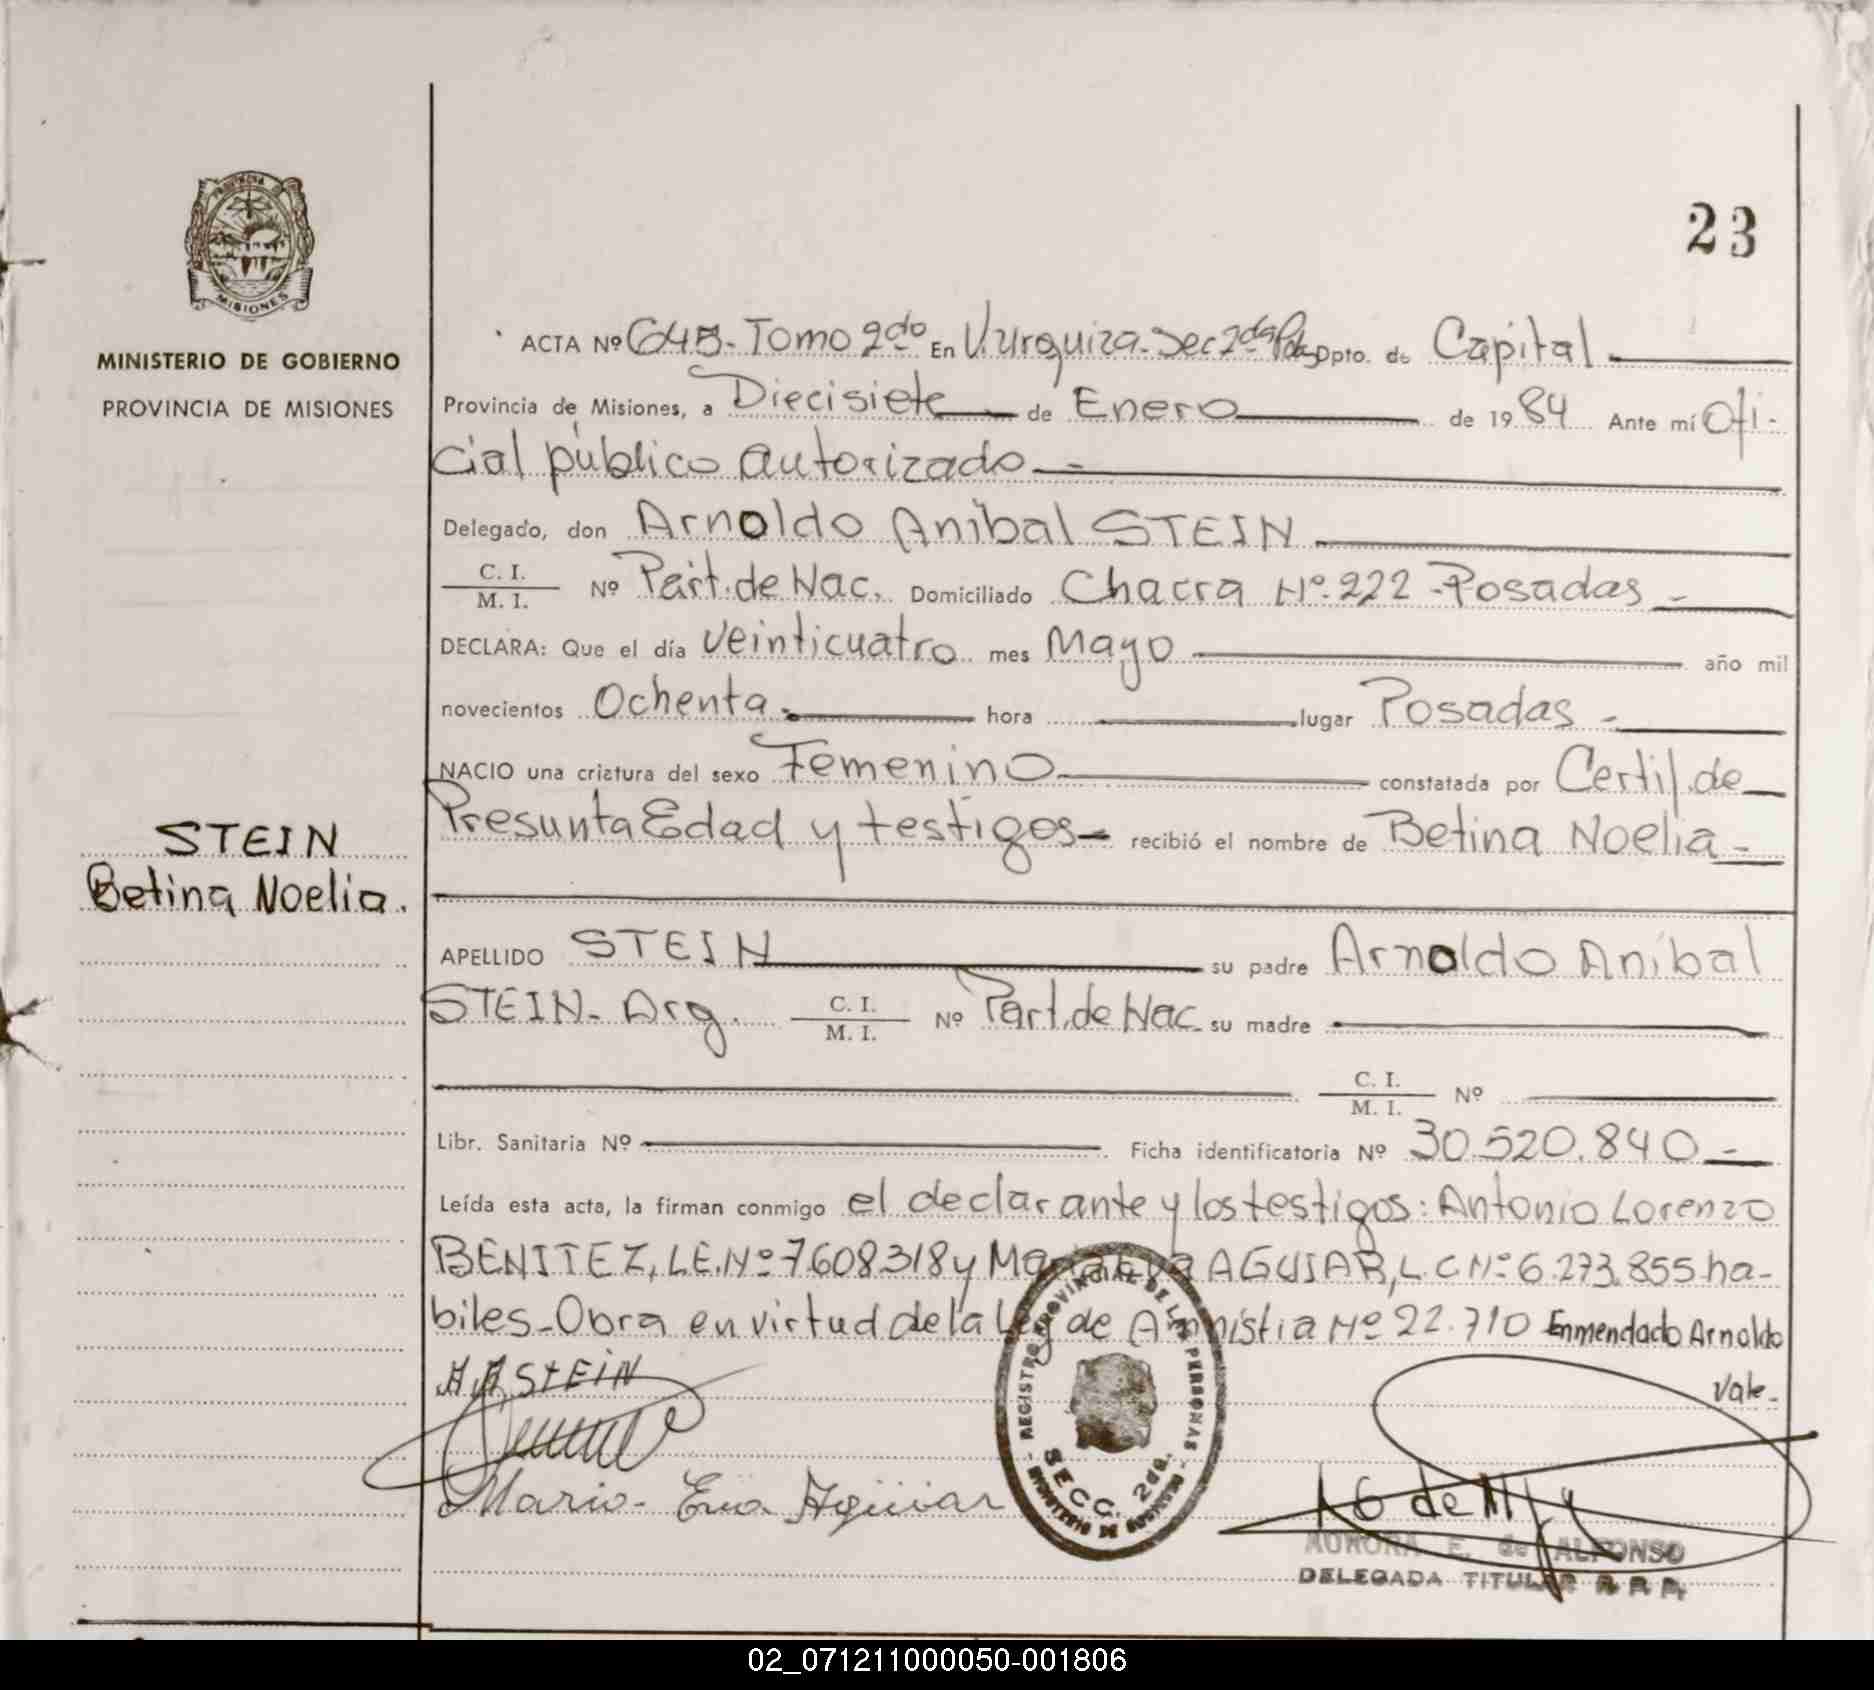 PROVINCIA DE
MISIONES
MINISTERIO DE GOBIERNO
PROVINCIA DE MISIONES
23
ACTA Nº 645- Tomo 2do En V. Urquiza- Sec 2da Pdas Dpto. de Capital
Provincia de Misiones, a Diecisiete de Enero de 1984 Ante mí Ofi-
cial público autorizado-
Delegado, don Arnoldo Anibal STEIN
C. I.
M. I. Nº Part. de Nac. Domiciliado Chacra Nº 222 - Posadas -
DECLARA: Que el día veinticuatro mes Mayo año mil
novecientos Ochenta. hora lugar Posadas -
NACIO una criatura del sexo Femenino constatada por Certif. de
Presunta Edad y testigos- recibió el nombre de Betina Noelia-
STEIN
Betina Noelia.
APELLIDO STEIN su padre Arnoldo Anibal
STEIN- Arg. C. I.
M. I. Nº Part. de Nac. su madre
C. I.
M. I. Nº
Libr. Sanitaria Nº Ficha identificatoria Nº 30.520.840-
Leída esta acta, la firman conmigo el declarante y los testigos: Antonio Lorenzo
BENITEZ, L.E. Nº 7608318 y Maria Eva AGUIAR, L.C Nº 6.273.855 ha-
biles- Obra en virtud de la Ley de Amnistia Nº 22.710 Enmendado Arnoldo
Vale-
A A STEIN
Maria- Eva Aguiar
REGISTRO PROVINCIAL DE LAS PERSONAS
SECC. 2da.
MINISTERIO DE GOBIERNO
AURORA E. de ALFONSO
DELEGADA TITULAR R P P
02_071211000050-001806